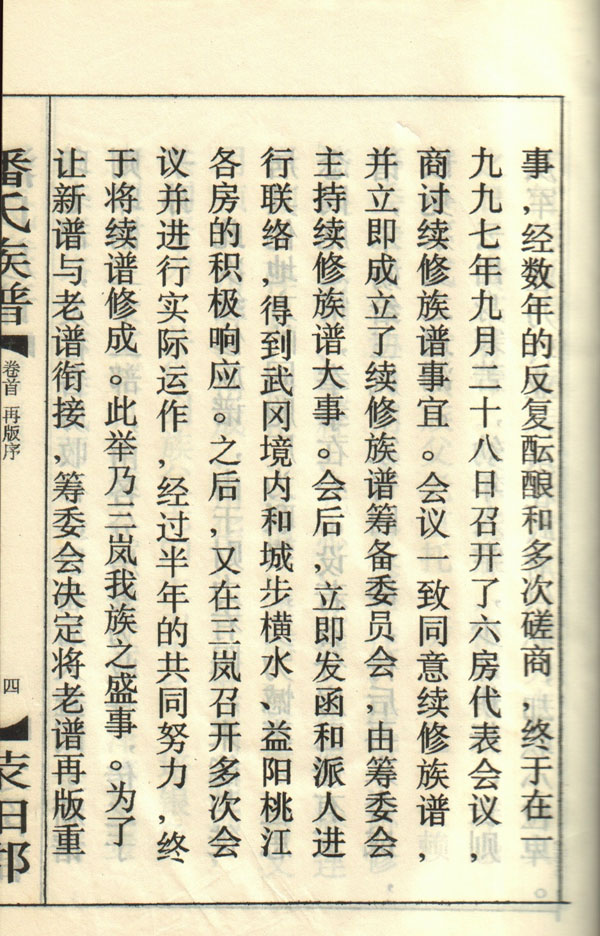 事，经数年的反复酝酿和多次磋商，终于在一
九九七年九月二十八日召开了六房代表会议，
商讨续修族谱事宜。会议一致同意续修族谱，
并立即成立了续修族谱筹备委员会，由筹委会
主持续修族谱大事。会后，立即发函和派人进
行联络，得到武冈境内和城步横水、益阳桃江
各房的积极响应。之后，又在三岚召开多次会
议并进行实际运作，经过半年的共同努力，终
于将续谱修成。此举乃三岚我族之盛事。为了
让新谱与老谱衔接，筹委会决定将老谱再版重
潘氏族谱
卷首 再版序
四